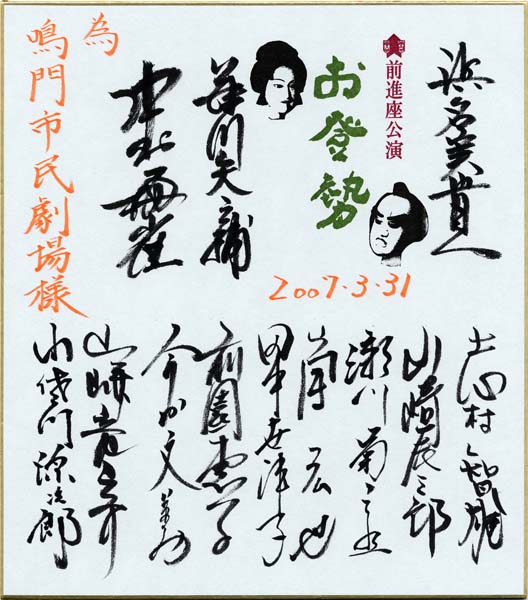 浜名実貴
前進座公演
お登勢
藤川矢之輔
中村梅雀
2007・3・31
為
鳴門市民劇場様
志村智雄
山崎辰三郎
瀬川菊之丞
嵐広也
田中世津子
前園恵子
今村文美
山崎竜之介
小佐川源次郎